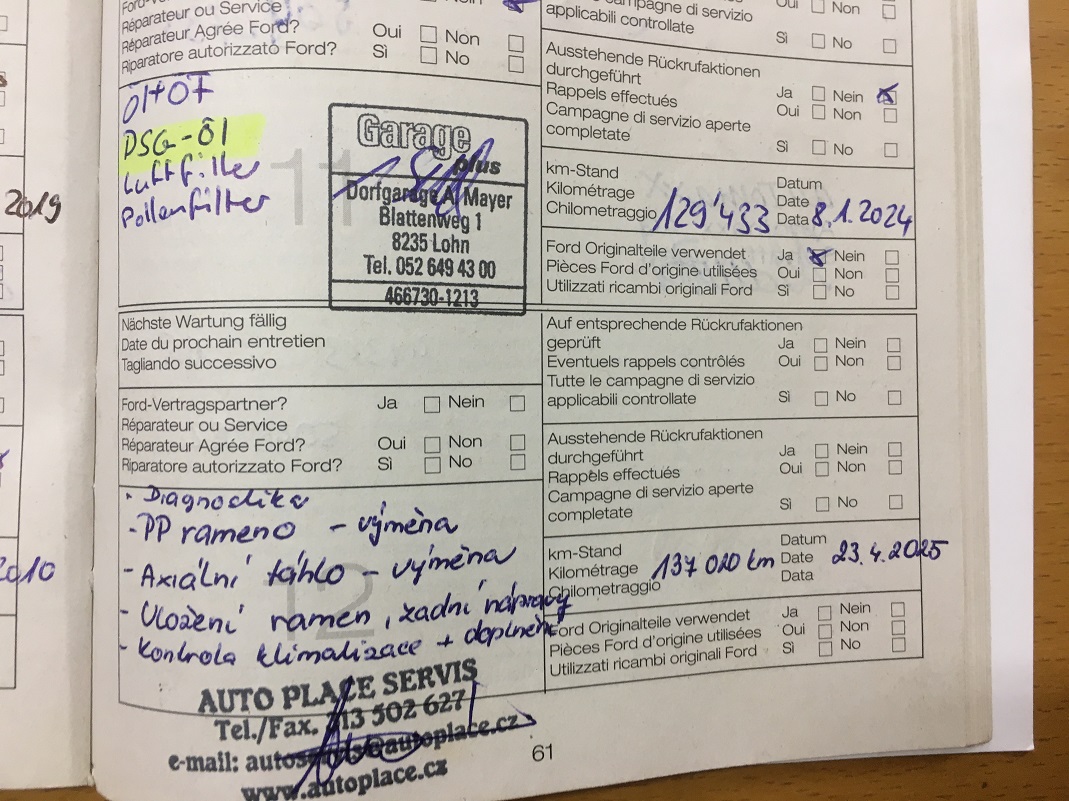 Réparateur ou Service
Réparateur Agrée Ford? Oui Non
Riparatore autorizzato Ford? Sì No
campagne di servizio
applicabili controllate
Oui Non
Sì No
Ausstehende Rückrufaktionen
durchgeführt
Rappels effectués
Campagne di servizio aperte
completate
Ja Nein
Oui Non
Sì No
Öl+ÖF
DSG-Öl
Luftfilter
Pollenfilter
11
Garage
plus
Dorfgarage A. Mayer
Blattenweg 1
8235 Lohn
Tel. 052 649 43 00
466730-1213
km-Stand
Kilométrage
Chilometraggio 129'433
Datum
Date
Data 8.1.2024
Ford Originalteile verwendet Ja Nein
Pièces Ford d'origine utilisées Oui Non
Utilizzati ricambi originali Ford Sì No
2019
Nächste Wartung fällig
Date du prochain entretien
Tagliando successivo
Auf entsprechende Rückrufaktionen
geprüft Ja Nein
Eventuels rappels contrôlés Oui Non
Tutte le campagne di servizio
applicabili controllate Sì No
Ford-Vertragspartner? Ja Nein
Réparateur ou Service
Réparateur Agrée Ford? Oui Non
Riparatore autorizzato Ford? Sì No
Ausstehende Rückrufaktionen
durchgeführt Ja Nein
Rappels effectués Oui Non
Campagne di servizio aperte
completate Sì No
2010
12
- Diagnostika
- PP rameno - výměna
- Axiální táhlo - výměna
- Uložení ramen, zadní nápravy
- Kontrola klimatizace + doplnění
km-Stand
Kilométrage
Chilometraggio 137 020 km
Datum
Date
Data 23.4.2025
Ford Originalteile verwendet Ja Nein
Pièces Ford d'origine utilisées Oui Non
Utilizzati ricambi originali Ford Sì No
AUTO PLACE SERVIS
Tel./Fax. 313 502 627
e-mail:
www.autoplace.cz
61